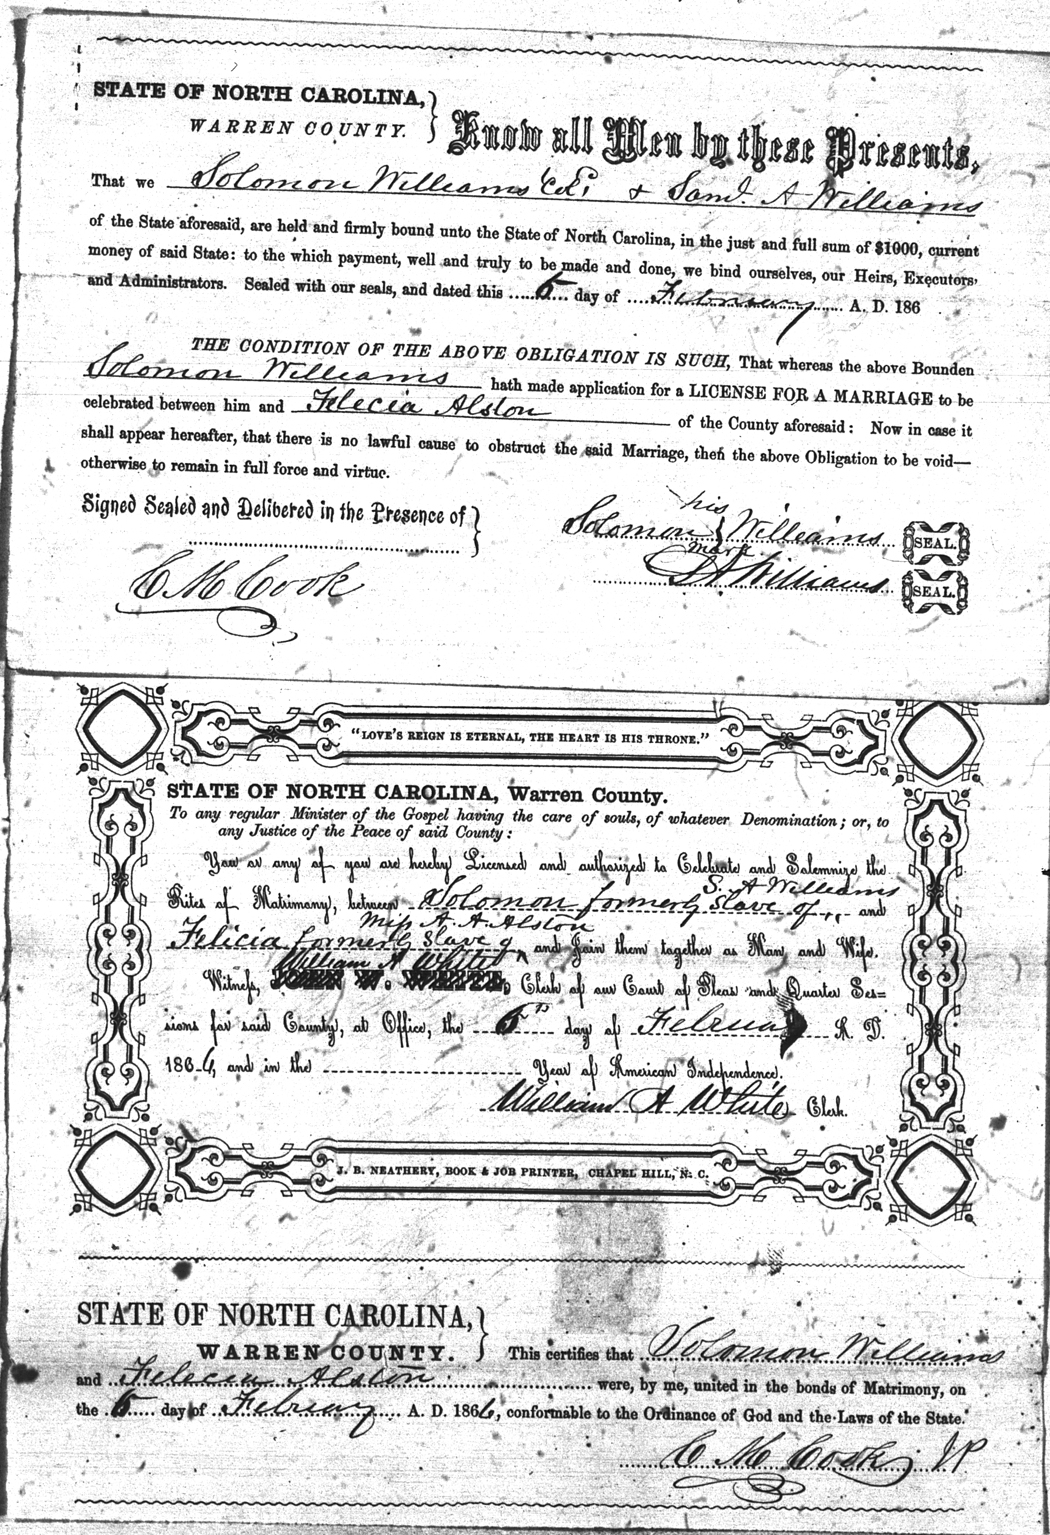 STATE OF NORTH CAROLINA,
WARREN COUNTY.
Know all Men by these Presents,
That we Solomon Williams Col & Saml. A Williams
of the State aforesaid, are held and firmly bound unto the State of North Carolina, in the just and full sum of $1000, current
money of said State: to the which payment, well and truly to be made and done, we bind ourselves, our Heirs, Executors,
and Administrators. Sealed with our seals, and dated this 5 day of February A. D. 186
THE CONDITION OF THE ABOVE OBLIGATION IS SUCH, That whereas the above Bounden
Solomon Williams hath made application for a LICENSE FOR A MARRIAGE to be
celebrated between him and Felecia Alston of the County aforesaid: Now in case it
shall appear hereafter, that there is no lawful cause to obstruct the said Marriage, then the above Obligation to be void—
otherwise to remain in full force and virtue.
Signed Sealed and Delibered in the Presence of
his
Solomon Williams SEAL.
mark
C M Cook
S A Williams SEAL.
"LOVE'S REIGN IS ETERNAL, THE HEART IS HIS THRONE."
STATE OF NORTH CAROLINA, Warren County.
To any regular Minister of the Gospel having the care of souls, of whatever Denomination; or, to
any Justice of the Peace of said County:
You or any of you are hereby Licensed and authorized to Celebrate and Solemnize the
S. A Williams
Rites of Matrimony, between Solomon formerly slave of and
Miss A. A. Alston
Felicia formerly slave of and Join them together as Man and Wife.
William A White
Witness, JOHN W. WHITE, Clerk of our Court of Pleas and Quarter Ses=
sions for said County, at Office, the 5th day of Februay A. D.
1866, and in the Year of American Independence.
William A White Clerk.
J. B. NEATHERY, BOOK & JOB PRINTER, CHAPEL HILL, N. C.
STATE OF NORTH CAROLINA,
WARREN COUNTY.
This certifies that Solomon Williams
and Felecia Alston were, by me, united in the bonds of Matrimony, on
the 5 day of Februay A. D. 1866, conformable to the Ordinance of God and the Laws of the State.
C M Cook JP